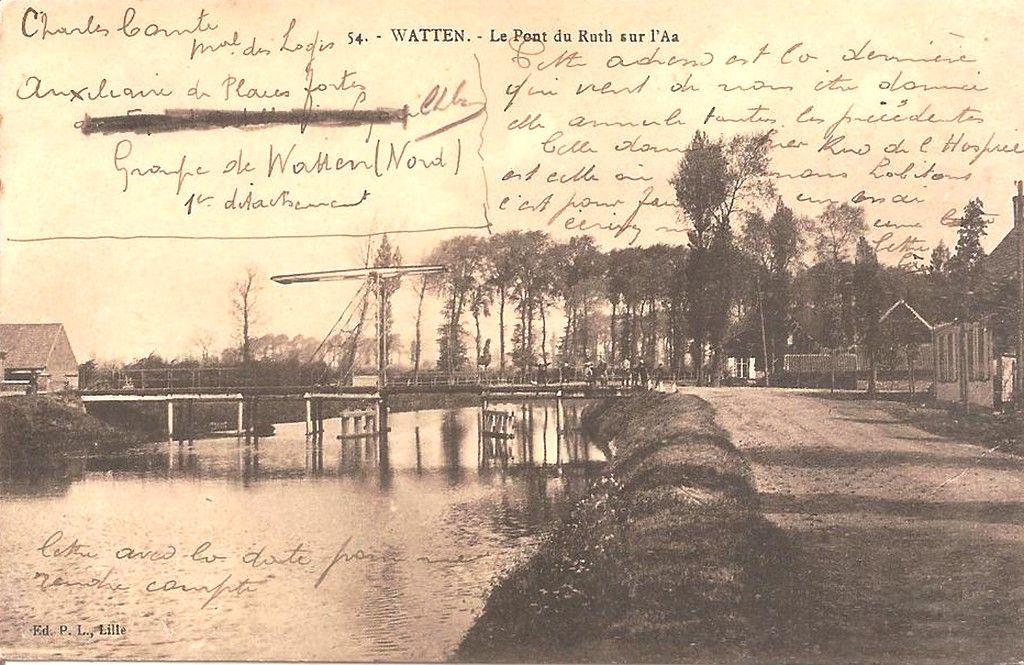 54. - WATTEN. - Le Pont du Ruth sur l'Aa
Charles Comte
mal des Logis
Auxiliaire de Places fortes
Groupe de Watten (Nord)
1er détachement
Cette adresse est la dernière
qui vient de nous être donnée
elle annule toutes les précédentes
Celle rue de l'Hospice
est celle où nous habitons
c'est pour
lettre
lettre avec la date pour me
rendre compte
Ed. P. L., Lille